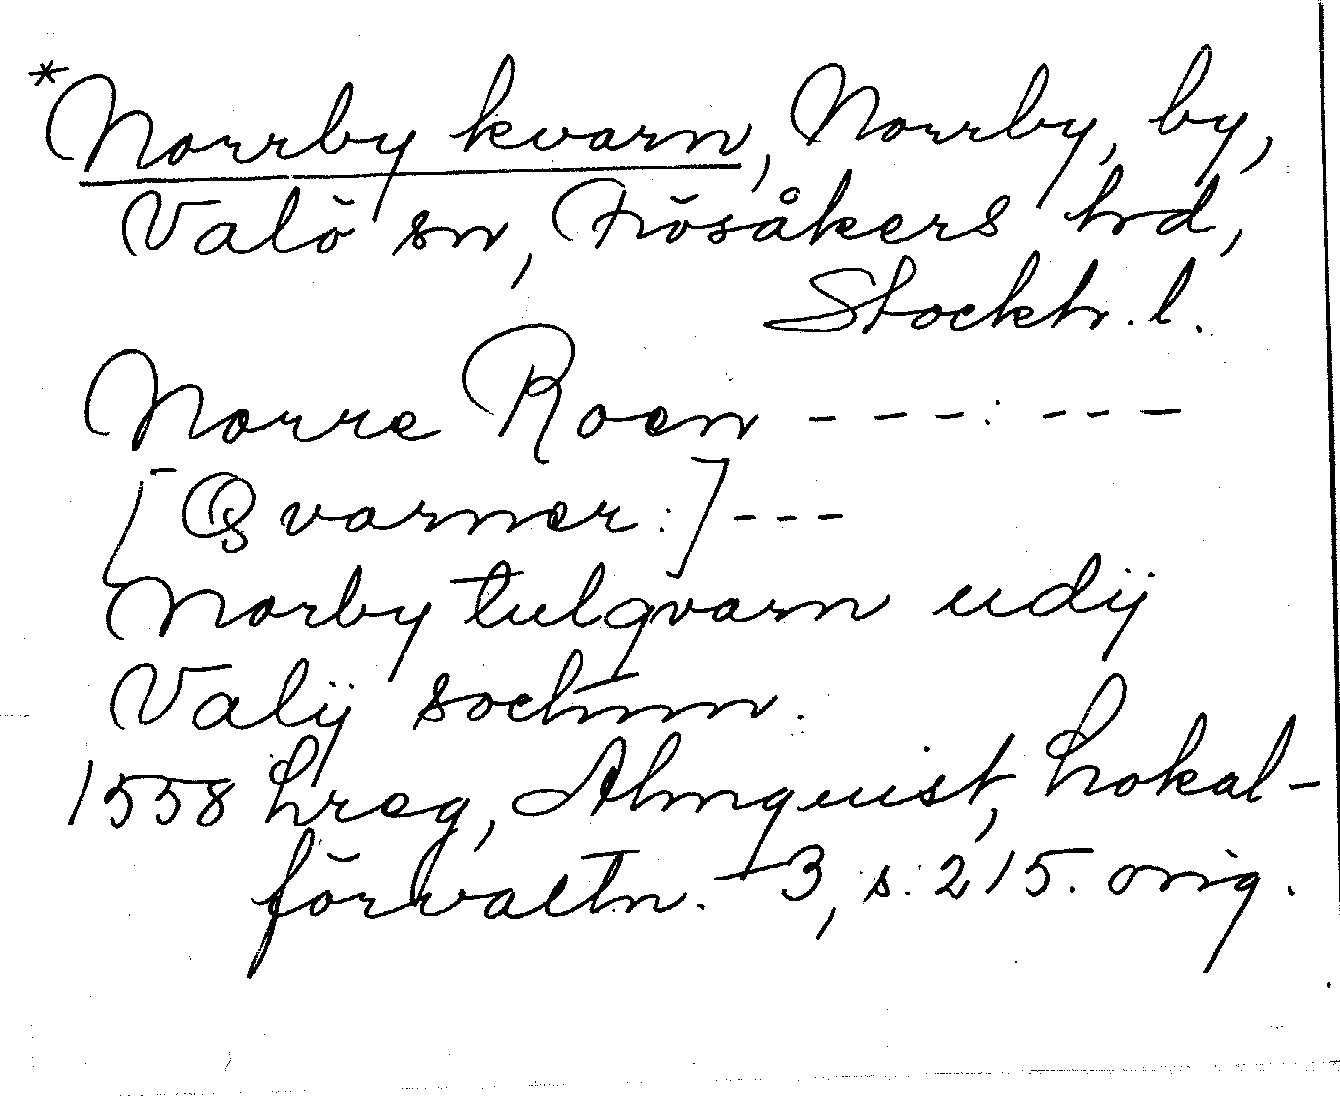 *Norrby kvarn, Norrby, by,
Valö sn, Frösåkers hd,
Stockh. l.
Norre Roen - - - : - - -
[Qvarner:] - - -
Norby tulqvarn udij
Valij sochnn.
1558 hreg, Almquist, Lokal-
förvaltn. 3, s. 215. orig.